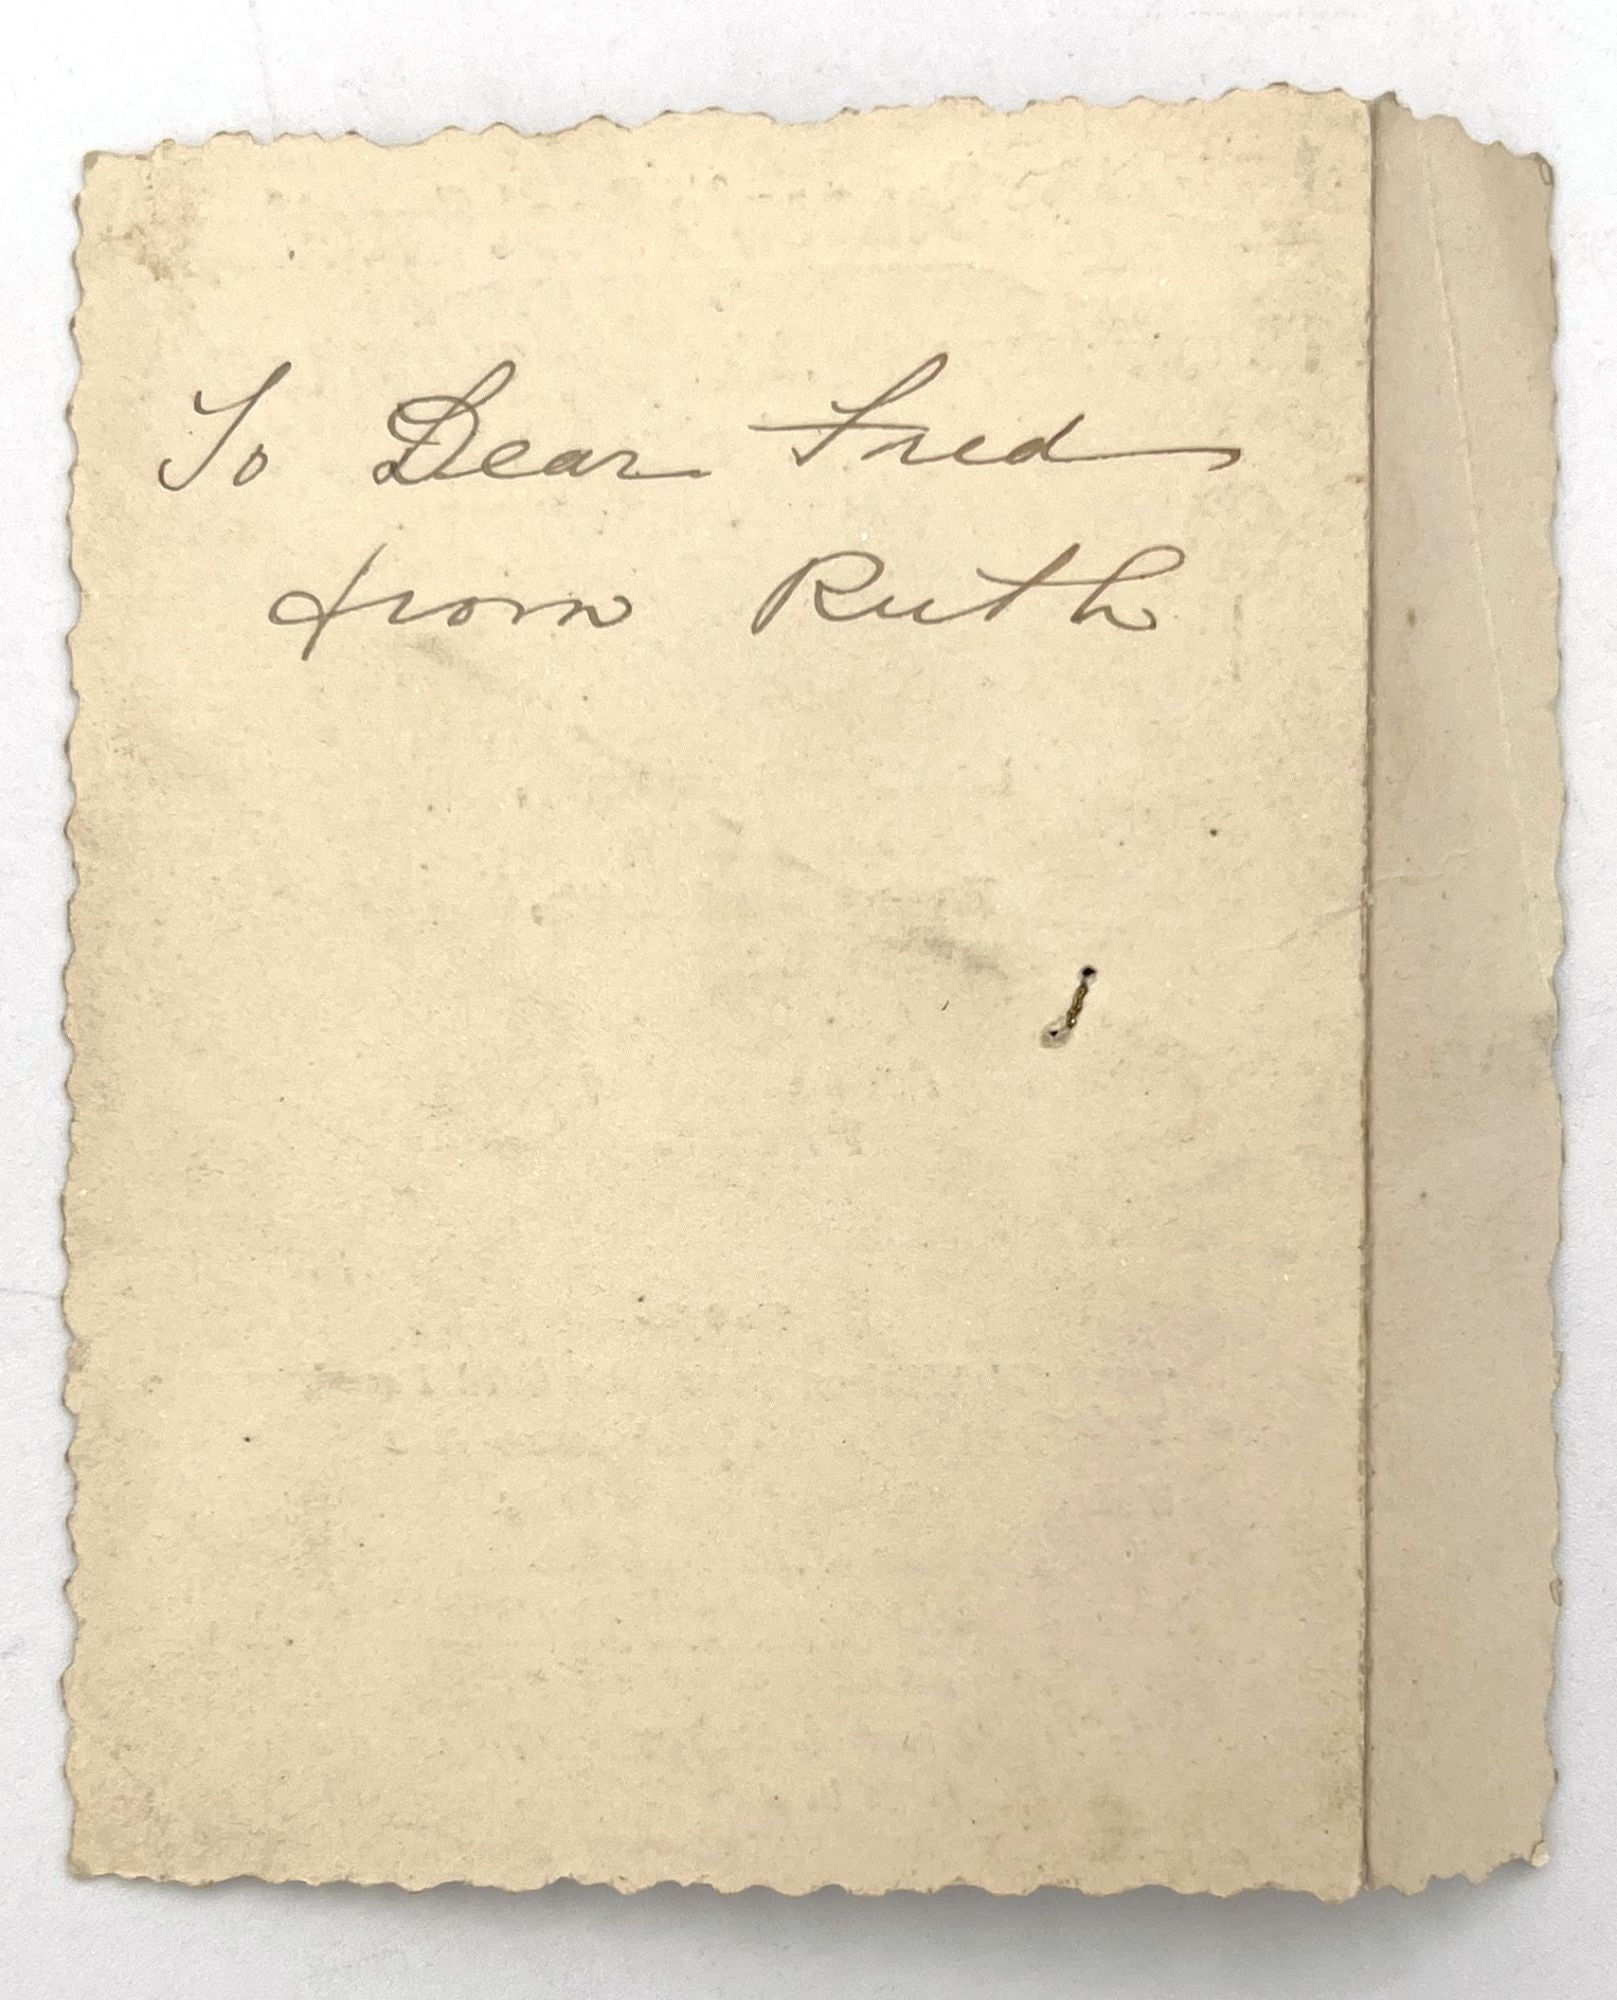 To Dear Fred
from Ruth